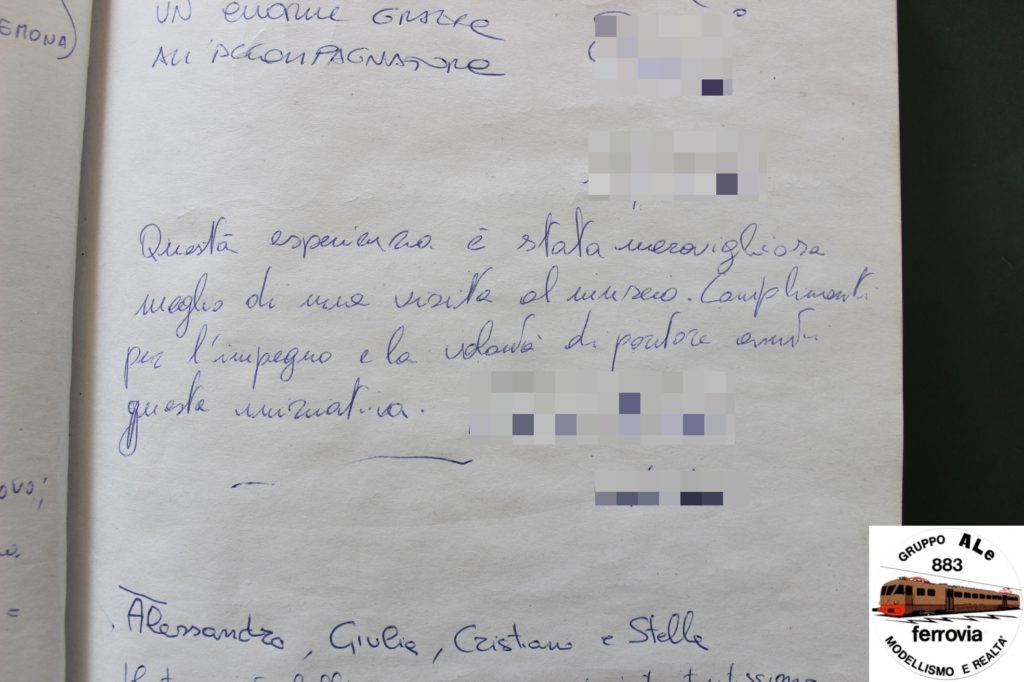 EMONA)
UN ENORME GRAZIE
ALL'ACCOMPAGNATORE
Questa esperienza è stata meravigliosa
meglio di una visita al museo. Complimenti
per l'impegno e la volontà di portare avanti
questa iniziativa.
Alessandro, Giulia, Cristiano e Stella
GRUPPO ALe
883
ferrovia
MODELLISMO E REALTA'